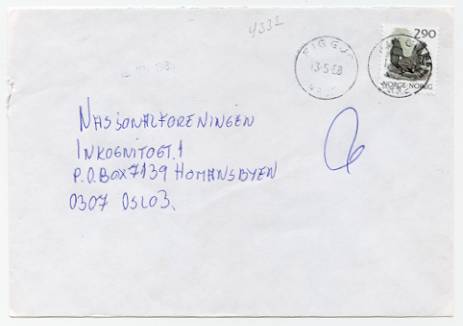 4332
FIGGJO
13·5·88
290
NORGE NOREG
NASJONALFORENINGEN
INKOGNITOGT.1
P.O.BOX 7139 HOMANSBYEN
0307 OSLO3.